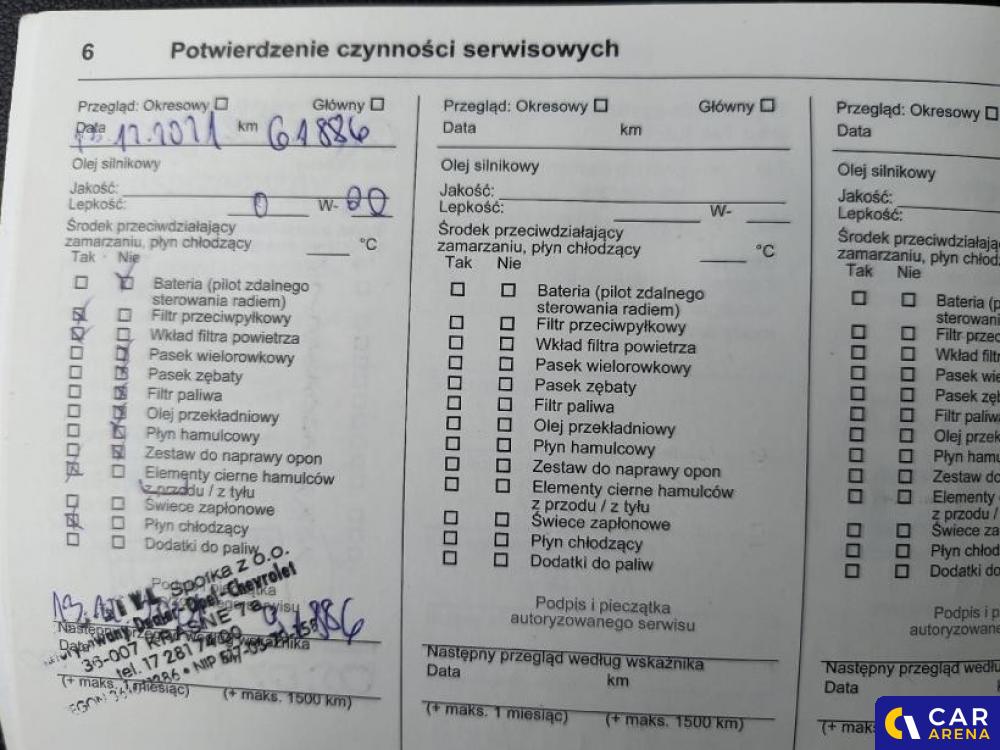 6 Potwierdzenie czynności serwisowych
Przegląd: Okresowy Główny
Data 12.2021 km 61886
Olej silnikowy
Jakość:
Lepkość: 0 W-
Środek przeciwdziałający
zamarzaniu, płyn chłodzący °C
Tak Nie
Bateria (pilot zdalnego
sterowania radiem)
Filtr przeciwpyłkowy
Wkład filtra powietrza
Pasek wielorowkowy
Pasek zębaty
Filtr paliwa
Olej przekładniowy
Płyn hamulcowy
Zestaw do naprawy opon
Elementy cierne hamulców
z przodu / z tyłu
Świece zapłonowe
Płyn chłodzący
Dodatki do paliw
Spółka z o.o.
Dealer Opel-Chevrolet
36-007 KRASNE 7a
tel. 17 281
NIP
(+ maks. 1 miesiąc) (+ maks. 1500 km)
Przegląd: Okresowy Główny
Data km
Olej silnikowy
Jakość:
Lepkość: W-
Środek przeciwdziałający
zamarzaniu, płyn chłodzący °C
Tak Nie
Bateria (pilot zdalnego
sterowania radiem)
Filtr przeciwpyłkowy
Wkład filtra powietrza
Pasek wielorowkowy
Pasek zębaty
Filtr paliwa
Olej przekładniowy
Płyn hamulcowy
Zestaw do naprawy opon
Elementy cierne hamulców
z przodu / z tyłu
Świece zapłonowe
Płyn chłodzący
Dodatki do paliw
Podpis i pieczątka
autoryzowanego serwisu
Następny przegląd według wskaźnika
Data km
(+ maks. 1 miesiąc) (+ maks. 1500 km)
Przegląd: Okresowy
Data
Olej silnikowy
Jakość:
Lepkość:
Środek przeciwdziałają
zamarzaniu, płyn chłod
Tak Nie
Bateria (p
sterowani
Filtr przec
Wkład filt
Pasek wie
Pasek zęb
Filtr paliw
Olej przek
Płyn hamu
Zestaw do
Elementy
z przodu /
Świece za
Płyn chłod
Dodatki do
Podpis i p
autoryzowane
Następny przegląd wedłu
Data
(+ maks.
CAR
ARENA